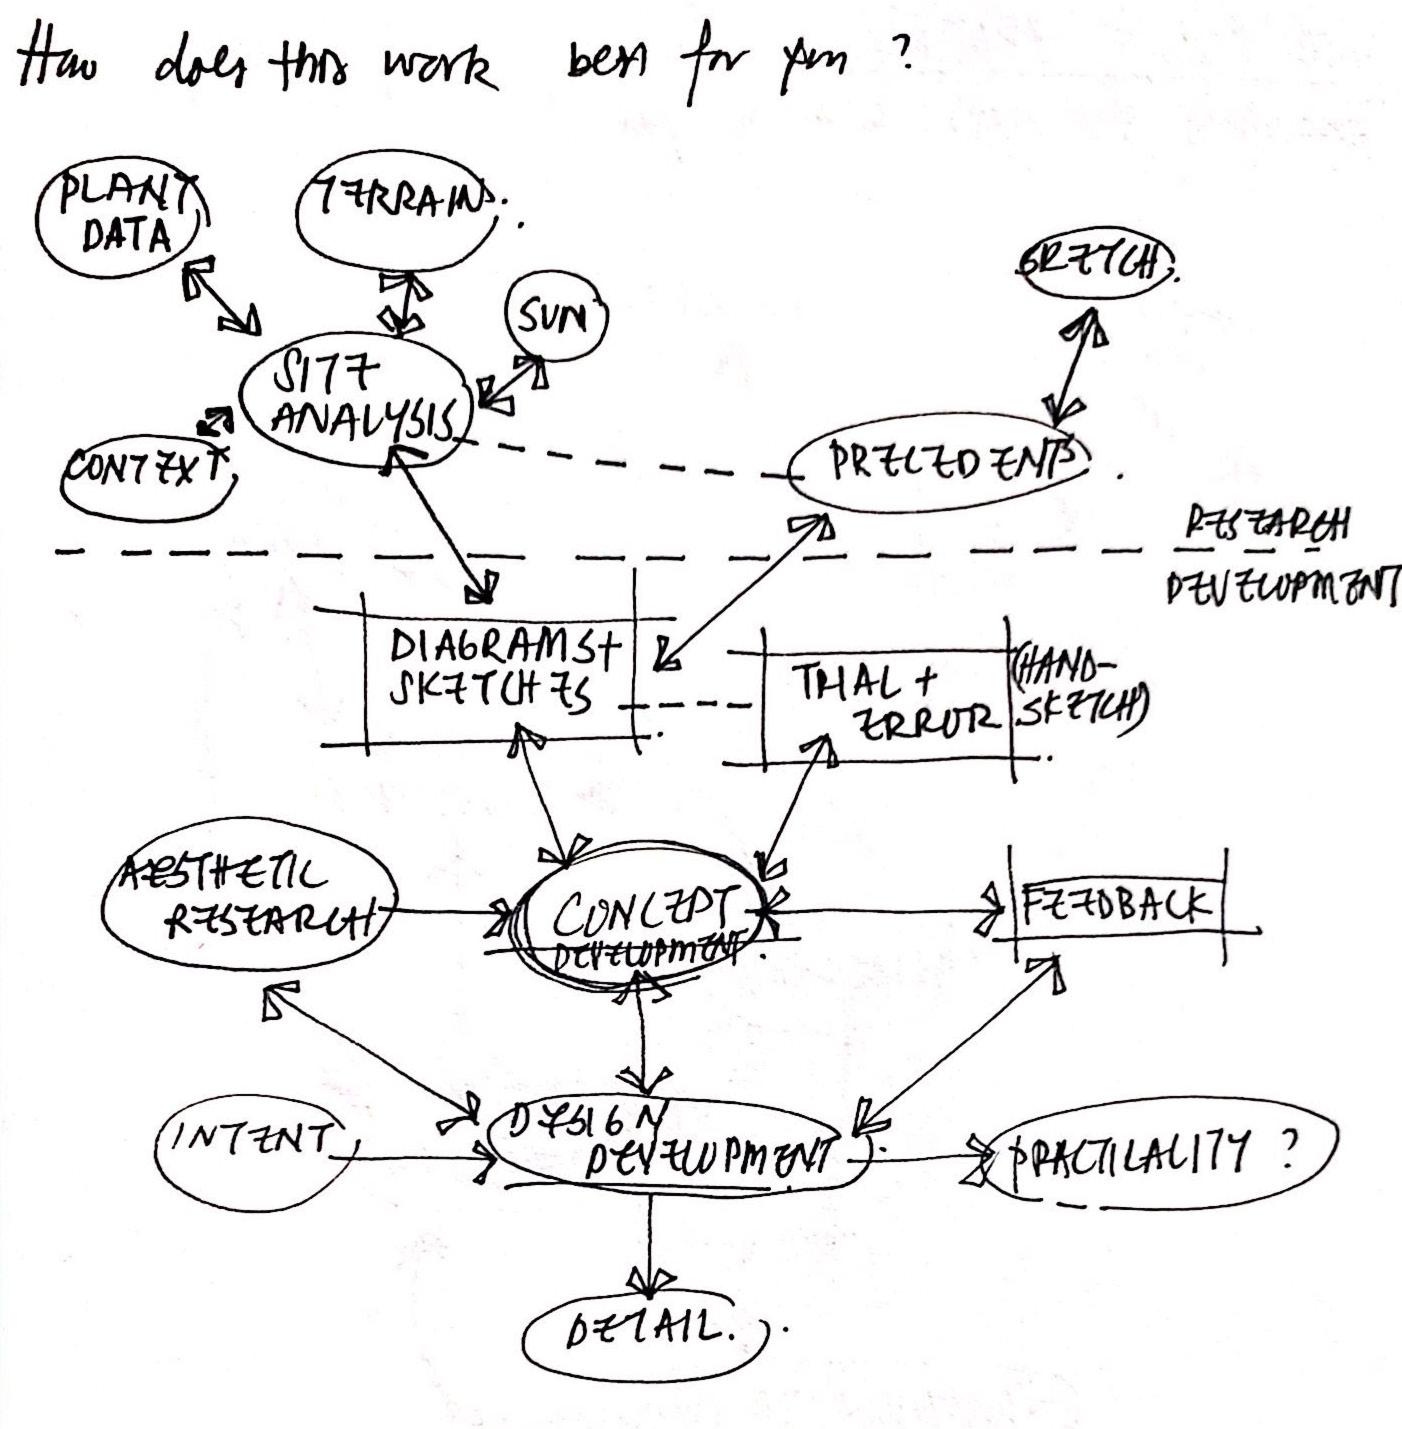 How does this work best for you ?
PLANT
DATA
TERRAIN
SUN
SKETCH
SITE
ANALYSIS
CONTEXT
PRECEDENTS
RESEARCH
DEVELOPMENT
DIAGRAMS +
SKETCHES
TRIAL +
ERROR
(HAND-
SKETCH)
AESTHETIC
RESEARCH
CONCEPT
DEVELOPMENT
FEEDBACK
INTENT
DESIGN
DEVELOPMENT
PRACTICALITY ?
DETAIL.